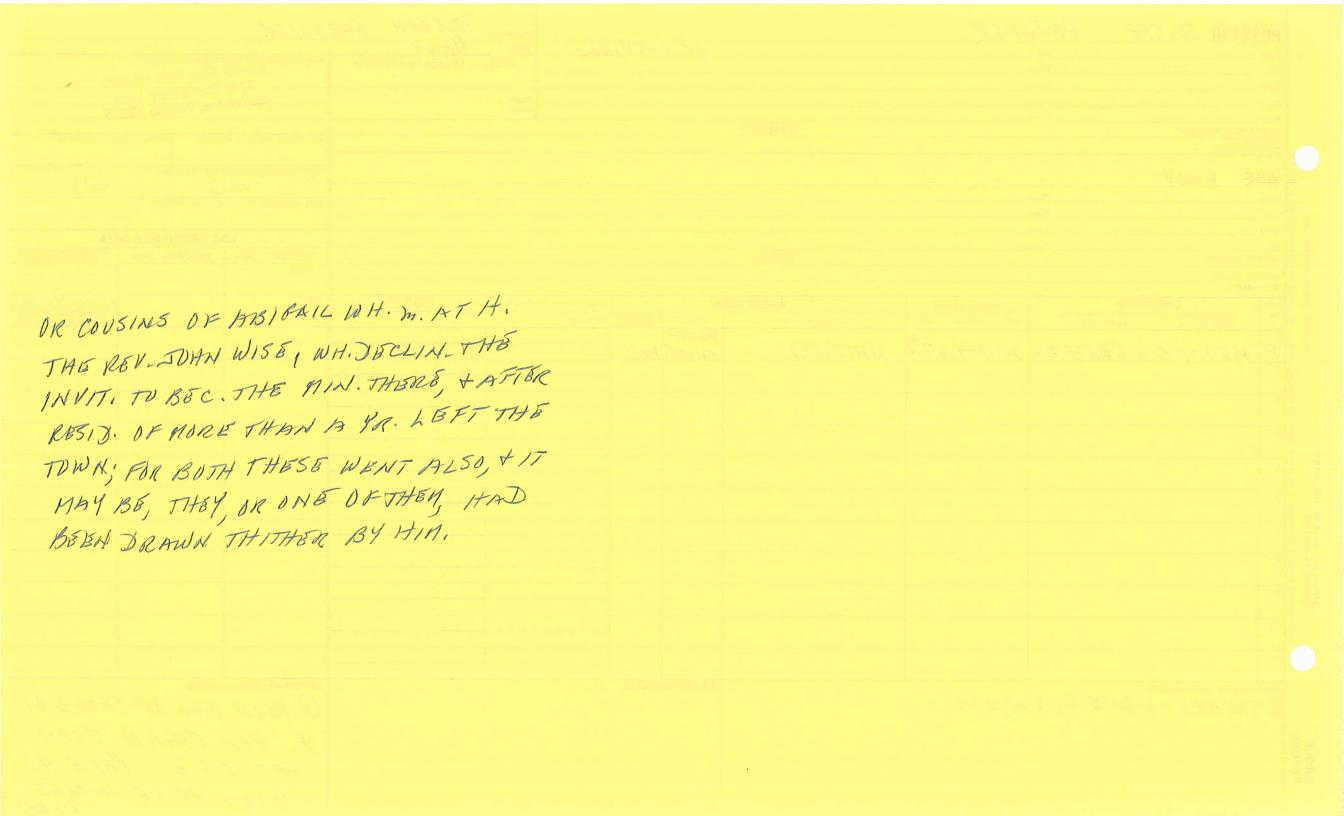 OR COUSINS OF ABIGAIL WH. m. AT H.
THE REV. JOHN WISE, WH. DECLIN. THE
INVIT. TO BEC. THE MIN. THERE, & AFTER
RESID. OF MORE THAN A YR. LEFT THE
TOWN; FOR BOTH THESE WENT ALSO, & IT
MAY BE, THEY, OR ONE OF THEM, HAD
BEEN DRAWN THITHER BY HIM.